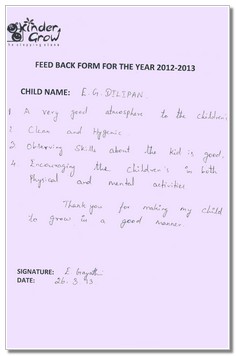 Kinder
Grow
FEED BACK FORM FOR THE YEAR 2012-2013
CHILD NAME: E. G. DILIPAN.
1 A very good atmosphere to the children's
2 Clean and Hygenic.
3 Observing Skills about the kid is good.
4 Encouraging the children's in both
Physical and mental activities
Thank you for making my child
to grow in a good manner.
SIGNATURE: E
DATE: 26.3.13